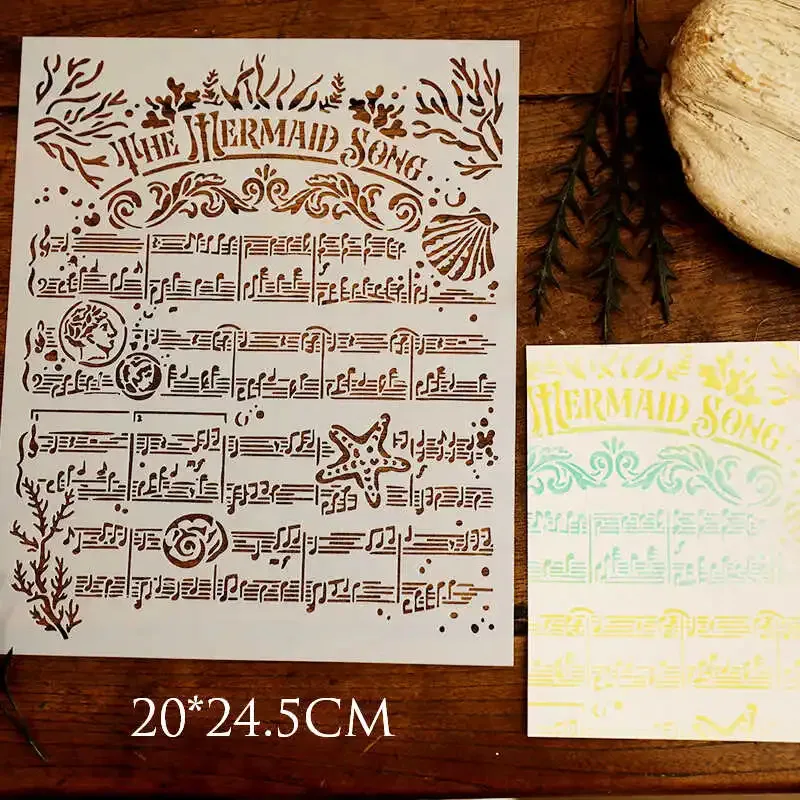 The Mermaid Song
2
2
1 2
mf
mf
Mermaid Song
20*24.5CM